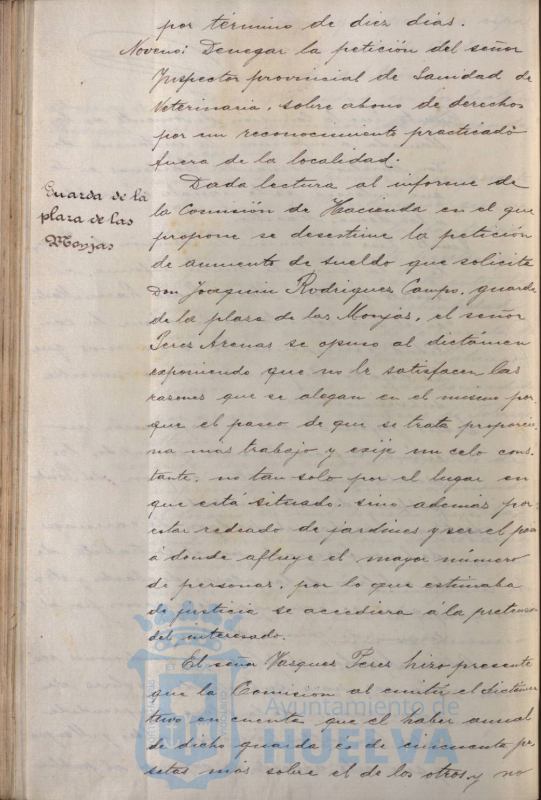 por término de diez días.
Noveno: Denegar la petición del señor
Inspector provincial de Sanidad de
Veterinaria, sobre abono de derechos
por un reconocimiento practicado
fuera de la localidad.
Guarda de la
plaza de las
Monjas
Dada lectura al informe de
la Comisión de Hacienda en el que
propone se desestime la petición
de aumento de sueldo que solicita
Don Joaquin Rodriguez Campo, guarda
de la plaza de las Monjas, el señor
Perez Arenas se opuso al dictámen
exponiendo que no le satisfacen las
razones que se alegan en el mismo por
que el paseo de que se trata proporcio
na mas trabajo y exije un celo cons
tante, no tan solo por el lugar en
que está situado, sino ademas por
estar rodeado de jardines y ser el
á donde afluye el mayor número
de personas, por lo que estimaba
de justicia se accediera á la
del interesado.
El señor Vasquez Perez hizo presente
que la Comisión al emitir el
tuvo en cuenta que el haber anual
de dicho guarda es de cincuenta pe
setas más sobre el de los otros, y no
Ayuntamiento de
HUELVA